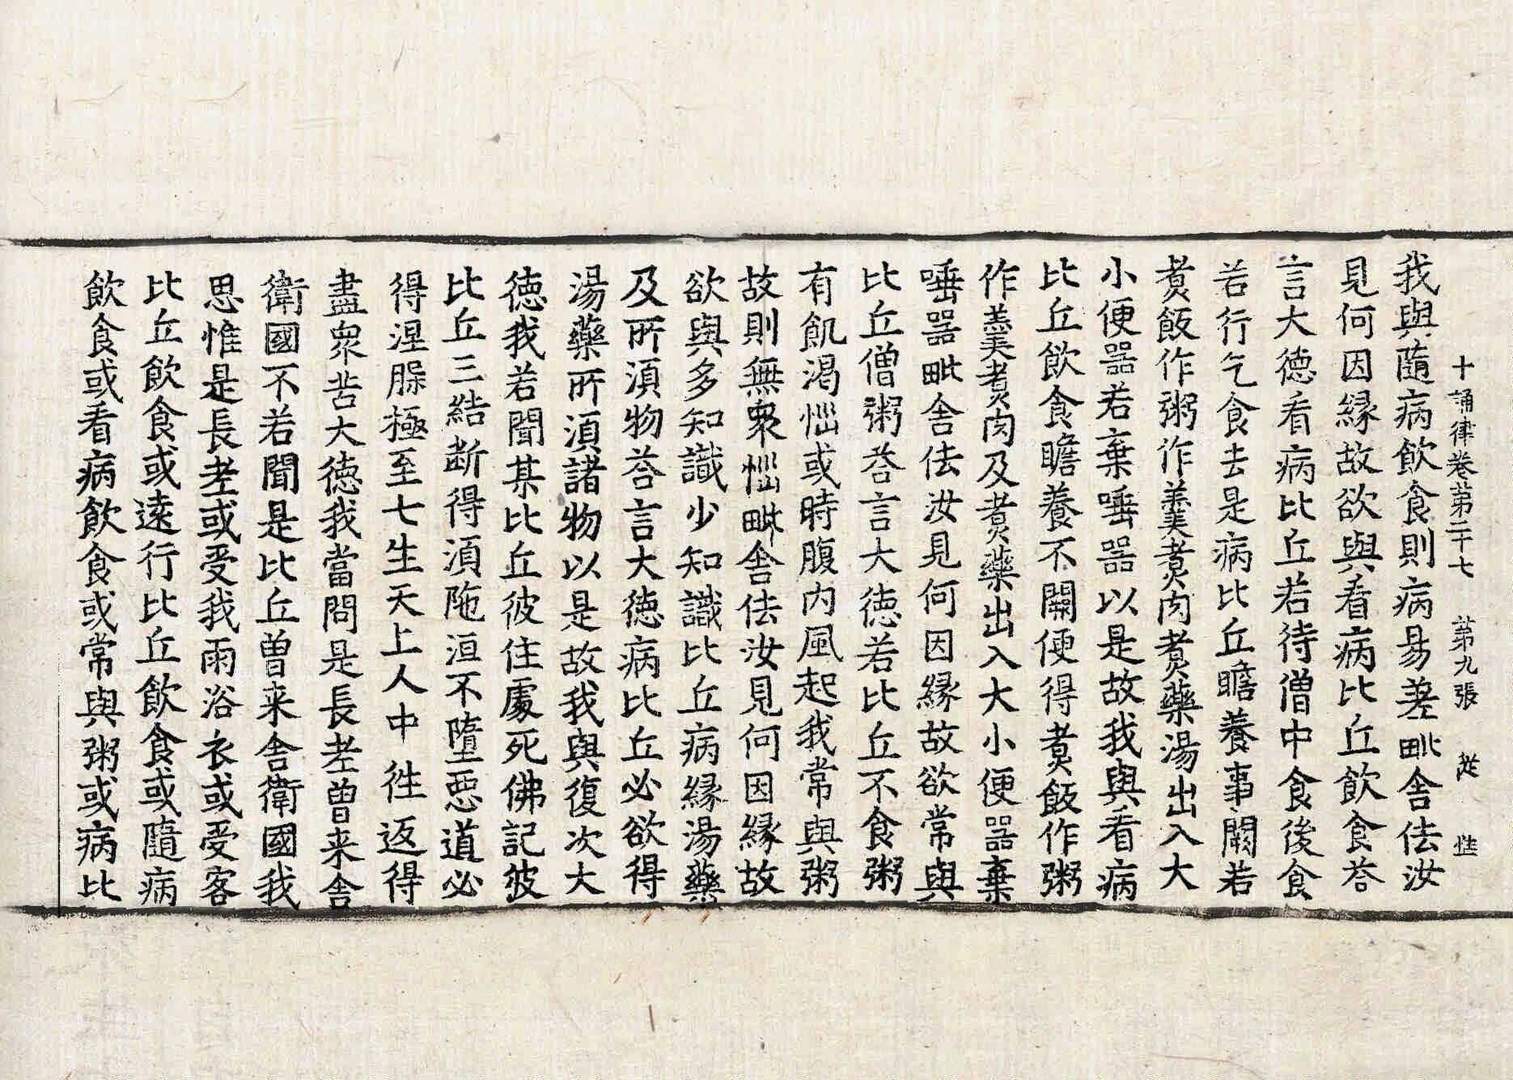 十誦律卷苐二十七　苐九張　㳂　㤚
我與隨病飲食則病易差毗舍佉汝
見何因縁故欲與看病比丘飲食荅
言大德看病比丘若待僧中食後食
若行乞食去是病比丘瞻養事闕若
煑飯作粥作羹煑肉煑藥湯出入大
小便器若棄唾器以是故我與看病
比丘飲食瞻養不闕便得煑飯作粥
作羹煑肉及煑藥出入大小便器棄
唾器毗舍佉汝見何因縁故欲常與
比丘僧粥荅言大徳若比丘不食粥
有飢渴惱或時腹内風起我常與粥
故則無衆惱毗舍佉汝見何因縁故
欲與多知識少知識比丘病縁湯藥
及所湏物荅言大徳病比丘必欲得
湯藥所湏諸物以是故我與復次大
徳我若聞某比丘彼住處死佛記彼
比丘三結断得湏陁洹不墮惡道必
得涅脲極至七生天上人中徃返得
盡衆苦大徳我當問是長老曽来舍
衛國不若聞是比丘曽来舍衛國我
思惟是長老或受我雨浴衣或受客
比丘飲食或逺行比丘飲食或隨病
飲食或看病飲食或常與粥或病比